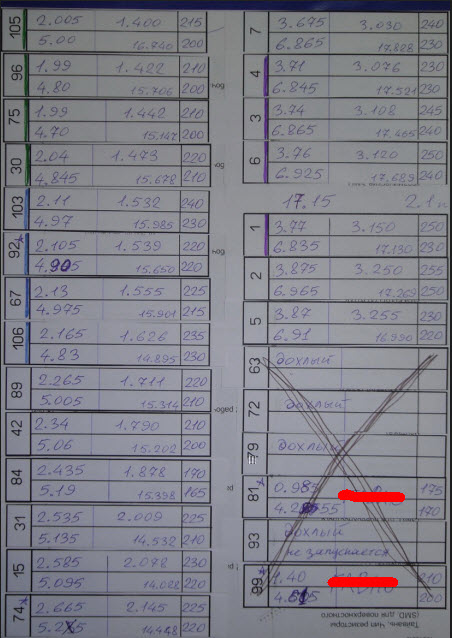 105 2.005 1.400 215
5.00 16.740 200
96 1.99 1.422 210
4.80 15.706 200
75 1.99 1.442 210
4.70 15.147 200
30 2.04 1.473 220
4.845 15.678 210
103 2.11 1.532 240
4.97 15.985 230
92* 2.105 1.539 220
4.905 15.650 220
67 2.13 1.555 225
4.975 15.901 215
106 2.165 1.626 235
4.83 14.895 230
89 2.265 1.711 220
5.005 15.314 210
42 2.34 1.790 210
5.06 15.202 200
84 2.435 1.878 170
5.19 15.398 165
31 2.535 2.009 225
5.135 14.532 210
15 2.585 2.078 230
5.095 14.028 220
74* 2.665 2.145 225
14.448 220
7 3.675 3.030 240
6.865 17.828 230
4 3.71 3.076 230
6.845 17.521 230
3 3.74 3.108 245
6.865 17.465 240
6 3.76 3.120 250
6.925 17.689 240
17.15
1 3.77 3.150 250
6.835 17.130 230
2 3.875 3.250 255
6.965 17.269 250
5 3.87 3.255 230
6.91 16.990 220
63 дохлый
72 дохлый
79 дохлый
81* 0.985 175
170
93 дохлый
не запускается
99* 1.40 210
200
Тайвань, Чип резисторы
(SMD для поверхностного